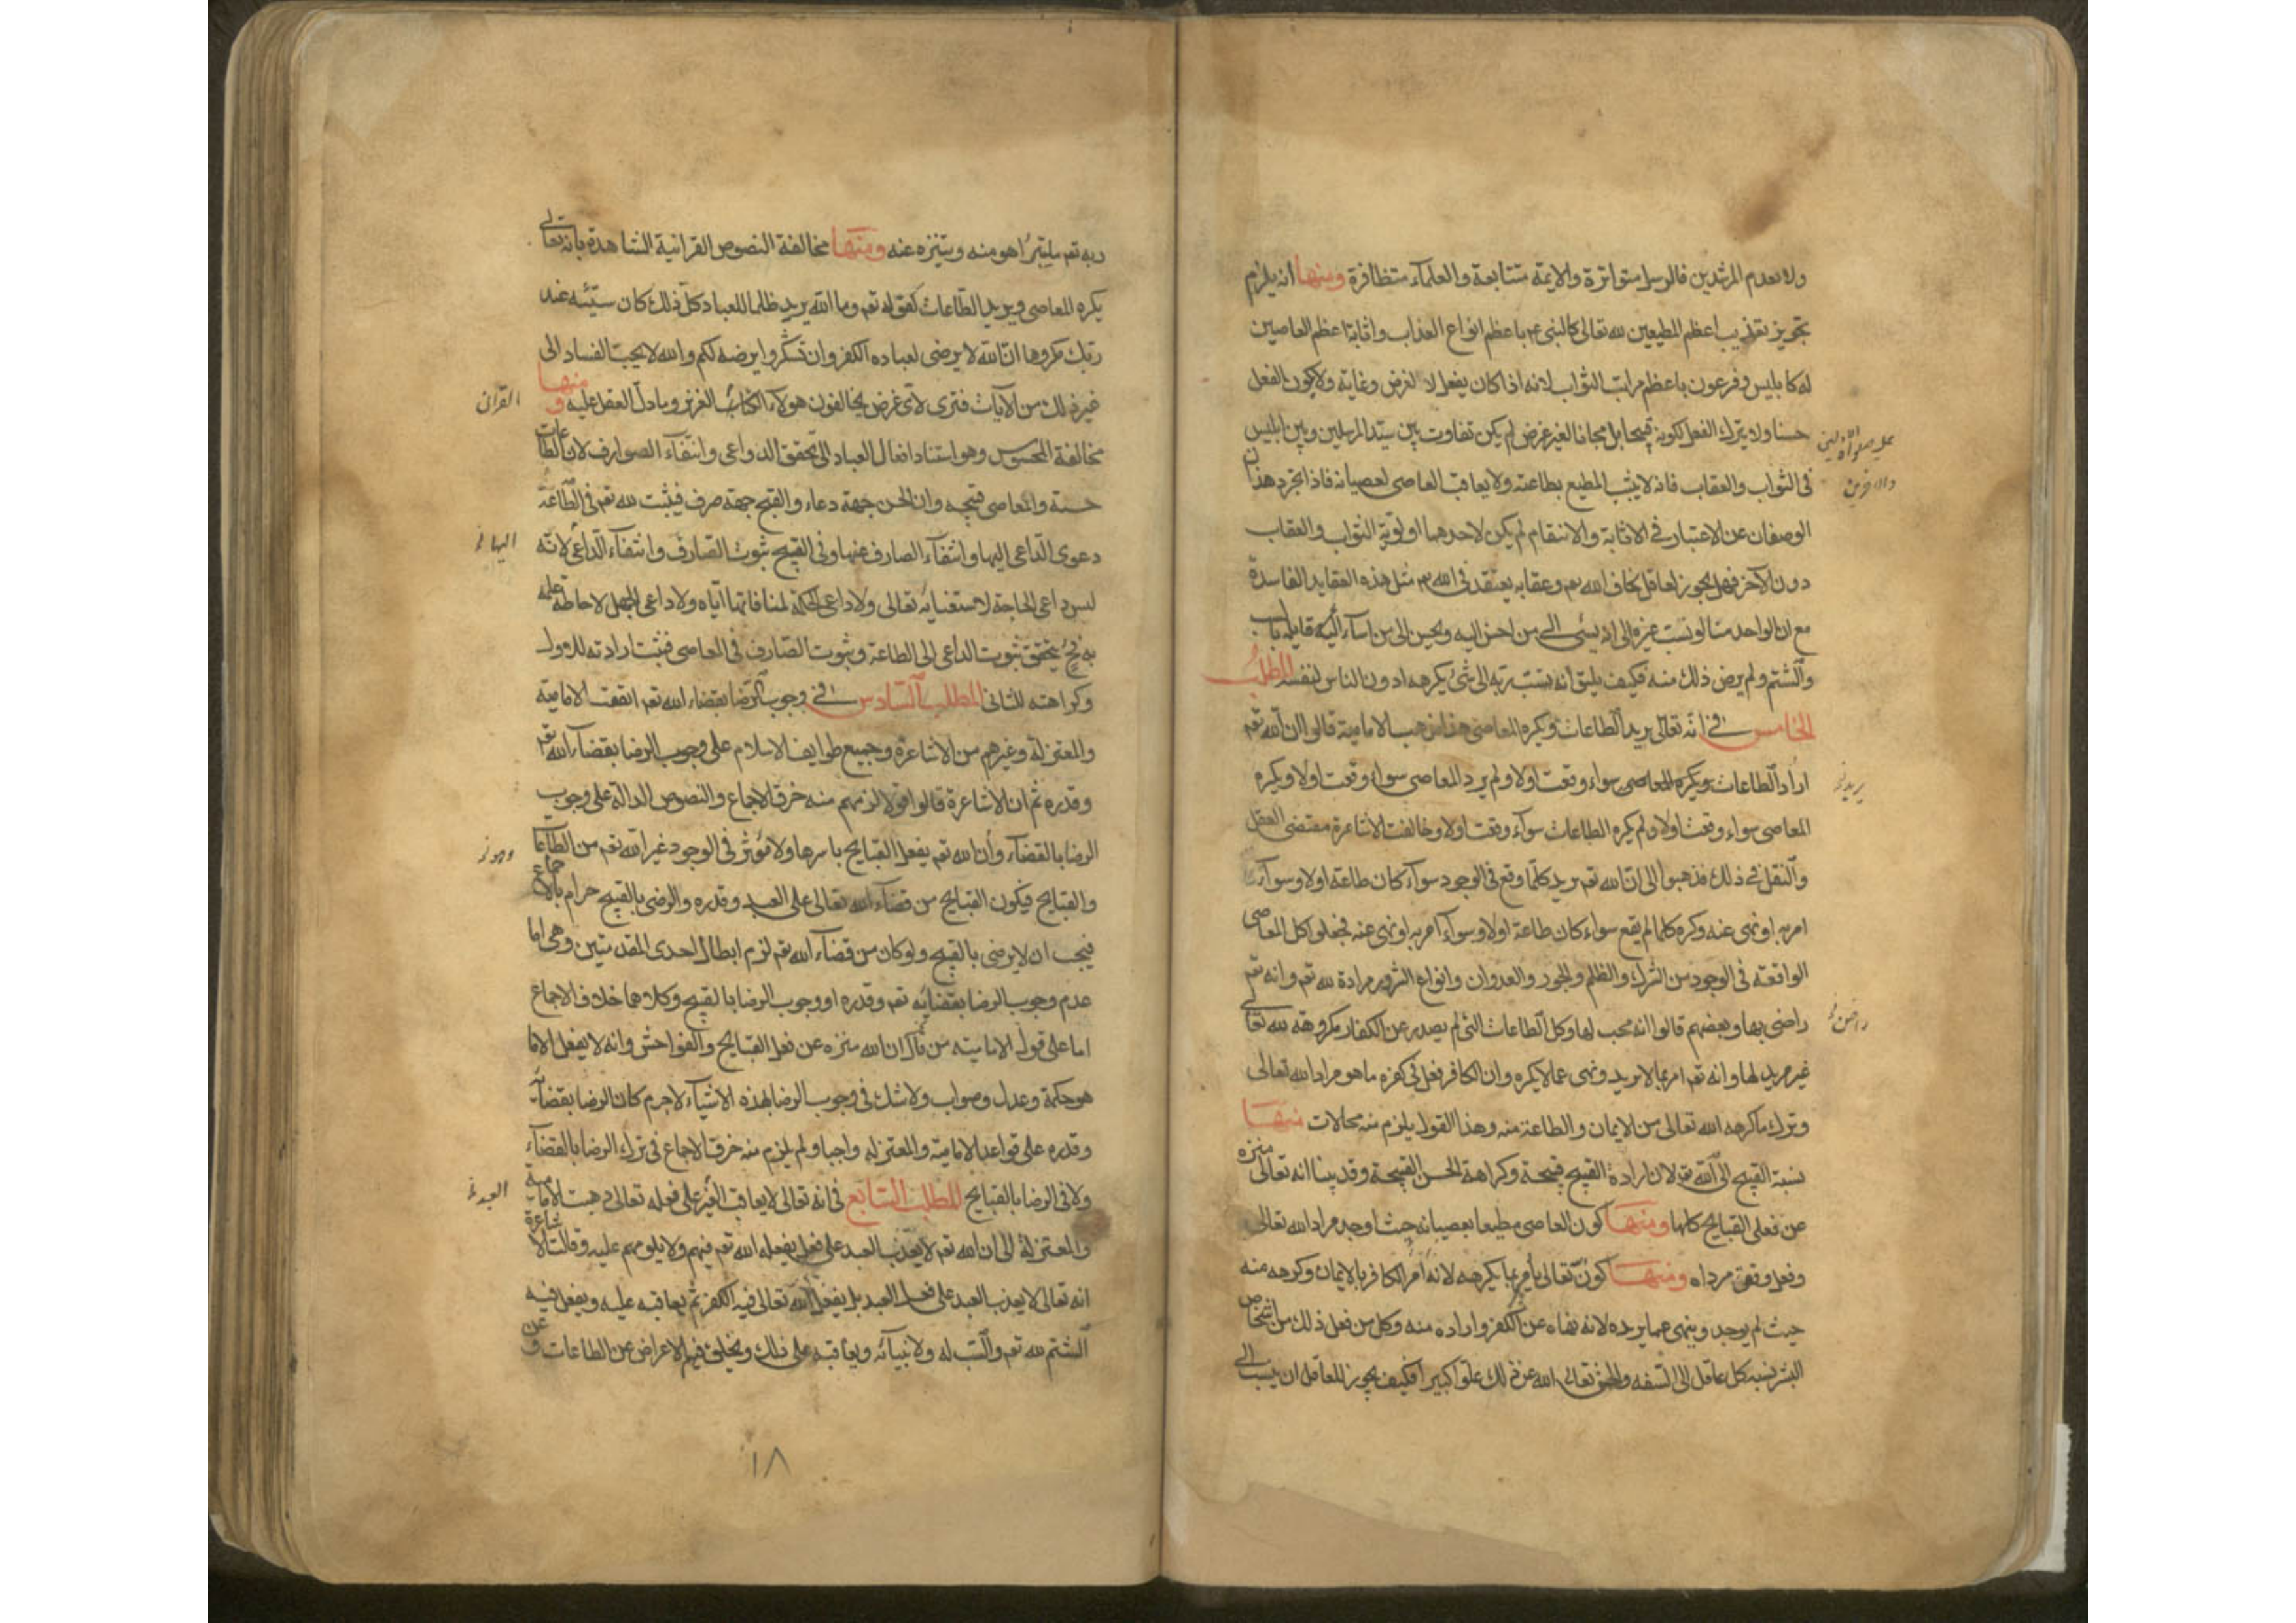 ولا لعدم المرشدين فالرسل متواترة والايمة متتابعة والعلماء متظافرة ومنها انه يلزم
تجويز تعذيب اعظم المطيعين لله تعالى كالنبى ع باعظم انواع العذاب واثابة اعظم العاصين
له كابليس وفرعون باعظم مراتب الثواب لانه اذا كان يفعل لا لغرض وغاية ولا لكون الفعل
حسنا ولا يترك الفعل لكونه قبيحا بل مجانا لغير غرض لم يكن تفاوت بين سيد المرسلين وبين ابليس
فى الثواب والعقاب فانه لا يثيب المطيع بطاعته ولا يعاقب العاصى لعصيانه فاذا تجرد هذان
الوصفان عن الاعتبار فى الاثابة والانتقام لم يكن لاحدهما اولوية الثواب والعقاب
دون الآخر فهل يجوز لعاقل يخاف الله تعم وعقابه يعتقد فى الله تعم مثل هذه العقايد الفاسدة
مع ان الواحد منا لو نسب غيره الى انه يسئى الى من احسن اليه ويحسن الى من اساء اليه قابله بالسب
والشتم ولم يرض ذلك منه فكيف يليق انه ينسب ربه الى شئ يكرهه ادون الناس لنفسه المطلب
الخامس فى انه تعالى يريد الطاعات ويكره المعاصى هذا مذهب الامامية قالوا ان الله تعم
اراد الطاعات ويكره المعاصى سواء وقعت اولا ولم يرد المعاصى سواء وقعت اولا ويكره
المعاصى سواء وقعت اولا ولم يكره الطاعات سواء وقعت اولا وخالفت الاشاعرة مقتضى العقل
والنقل فى ذلك فذهبوا الى ان الله تعم يريد كلما وقع فى الوجود سواء كان طاعة اولا وسواء
امر به او نهى عنه وكره كلما لم يقع سواء كان طاعة اولا وسواء امر به او نهى عنه فجعلوا كل المعاصى
الواقعة فى الوجود من الشرك والظلم والجور والعدوان وانواع الشرور مرادة لله تعم وانه تعم
راضى بها وبعضهم قالوا انه محب لها وكل الطاعات التى لم يصدر عن الكفار مكروهة لله تعالى
غير مريد لها وانه تعم امر بما لا يريد ونهى عما لا يكره وان الكافر فعل فى كفره ما هو مراد الله تعالى
وترك ما كرهه الله تعالى من الايمان والطاعة منه وهذا القول يلزم منه محالات منها
نسبة القبيح الى الله تعم لان ارادة القبيح قبيحة وكراهة الحسن القبيحة وقد بينا انه تعالى منزه
عن فعل القبايح كلها ومنها كون العاصى مطيعا بعصيانه حيث اوجد مراد الله تعالى
وفعل وفق مرداه ومنها كونه تعالى يأمر بما يكرهه لانه امر الكافر بالايمان وكرهه منه
حيث لم يوجد وينهى عما يريده لانه نهاه عن الكفر واراده منه وكل من فعل ذلك من اشخاص
البشر نسبه كل عاقل الى السفه والحمق تعالى الله عن ذلك علوا كبيرا فكيف يجوز للعاقل ان ينسب الى
والآخرين
يريد خ
راض خ
ربه تعم ما يتبرأ هو منه ويتنزه عنه ومنها مخالفة النصوص القرانية الشاهدة بانه تعالى
يكره المعاصى ويريد الطاعات كقوله تعم وما الله يريد ظلما للعباد كل ذلك كان سيئه عند
ربك مكروها ان الله لا يرضى لعباده الكفر وان تشكروا يرضه لكم والله لا يحب الفساد الى
غير ذلك من الآيات فترى لاى غرض يخالفون هولاء الكتاب العزيز وما دل العقل عليه ومنها
مخالفة المحسوس وهو استناد افعال العباد الى تحقق الدواعى وانتفاء الصوارف لان الطاعات
حسنة والمعاصى قبيحه وان الحسن جهة دعاء والقبح جهة صرف فيثبت لله تعم فى الطاعة
دعوى الداعى اليها وانتفاء الصارف عنها وفى القبيح ثبوت الصارف وانتفاء الداعى لانه
ليس داعى الحاجة لاستغنائه تعالى ولا داعى الحكمة لمنافاتها اياه ولا داعى الجهل لاحاطة علمه
به فح يتحقق ثبوت الداعى الى الطاعة وثبوت الصارف فى المعاصى فثبت ارادته للاول
وكراهته للثانى المطلب السادس فى وجوب الرضا بقضاء الله تعم اتفقت الامامية
والمعتزلة وغيرهم من الاشاعرة وجميع طوايف الاسلام على وجوب الرضا بقضاء الله تعم
وقدره ثم ان الاشاعرة قالوا قولا لزمهم منه خرق الاجماع والنصوص الدالة على وجوب
الرضا بالقضاء وان الله تعم يفعل القبايح باسرها ولا مؤثر فى الوجود غير الله تعم من الطاعات
والقبايح فيكون القبايح من قضاء الله تعالى على العبد وقدره والرضى بالقبيح حرام بالاجماع
فيجب ان لا يرضى بالقبيح ولو كان من قضاء الله تعم لزم ابطال احدى المقدمتين وهى اما
عدم وجوب الرضا بقضائه تعم وقدره او وجوب الرضا بالقبيح وكلاهما خلاف الاجماع
اما على قول الامامية من ان الله منزه عن فعل القبايح والفواحش وانه لا يفعل الا ما
هو حكمة وعدل وصواب ولا شك فى وجوب الرضا بهذه الاشياء لاجرم كان الرضا بقضائه
وقدره على قواعد الامامية والمعتزله واجبا ولم يلزم منه خرق الاجماع فى ترك الرضا بالقضاء
ولا فى الرضا بالقبايح المطلب السابع فى انه تعالى لا يعاقب الغير على فعله تعالى ذهبت الامامية
والمعتزلة الى ان الله تعم لا يعذب العبد على فعل يفعله الله تعم فيهم ولا يلومهم عليه وقالت الاشاعرة
انه تعالى لا يعذب العبد على فعل العبد بل يفعل الله تعالى فيه الكفر ثم يعاقبه عليه ويفعل فيه
الشتم لله تعم والسب له ولانبيائه ويعاقبه على ذلك ويخلق فيهم الاعراض عن الطاعات وعن
القرآن
اليها خ
العبد خ
١٨